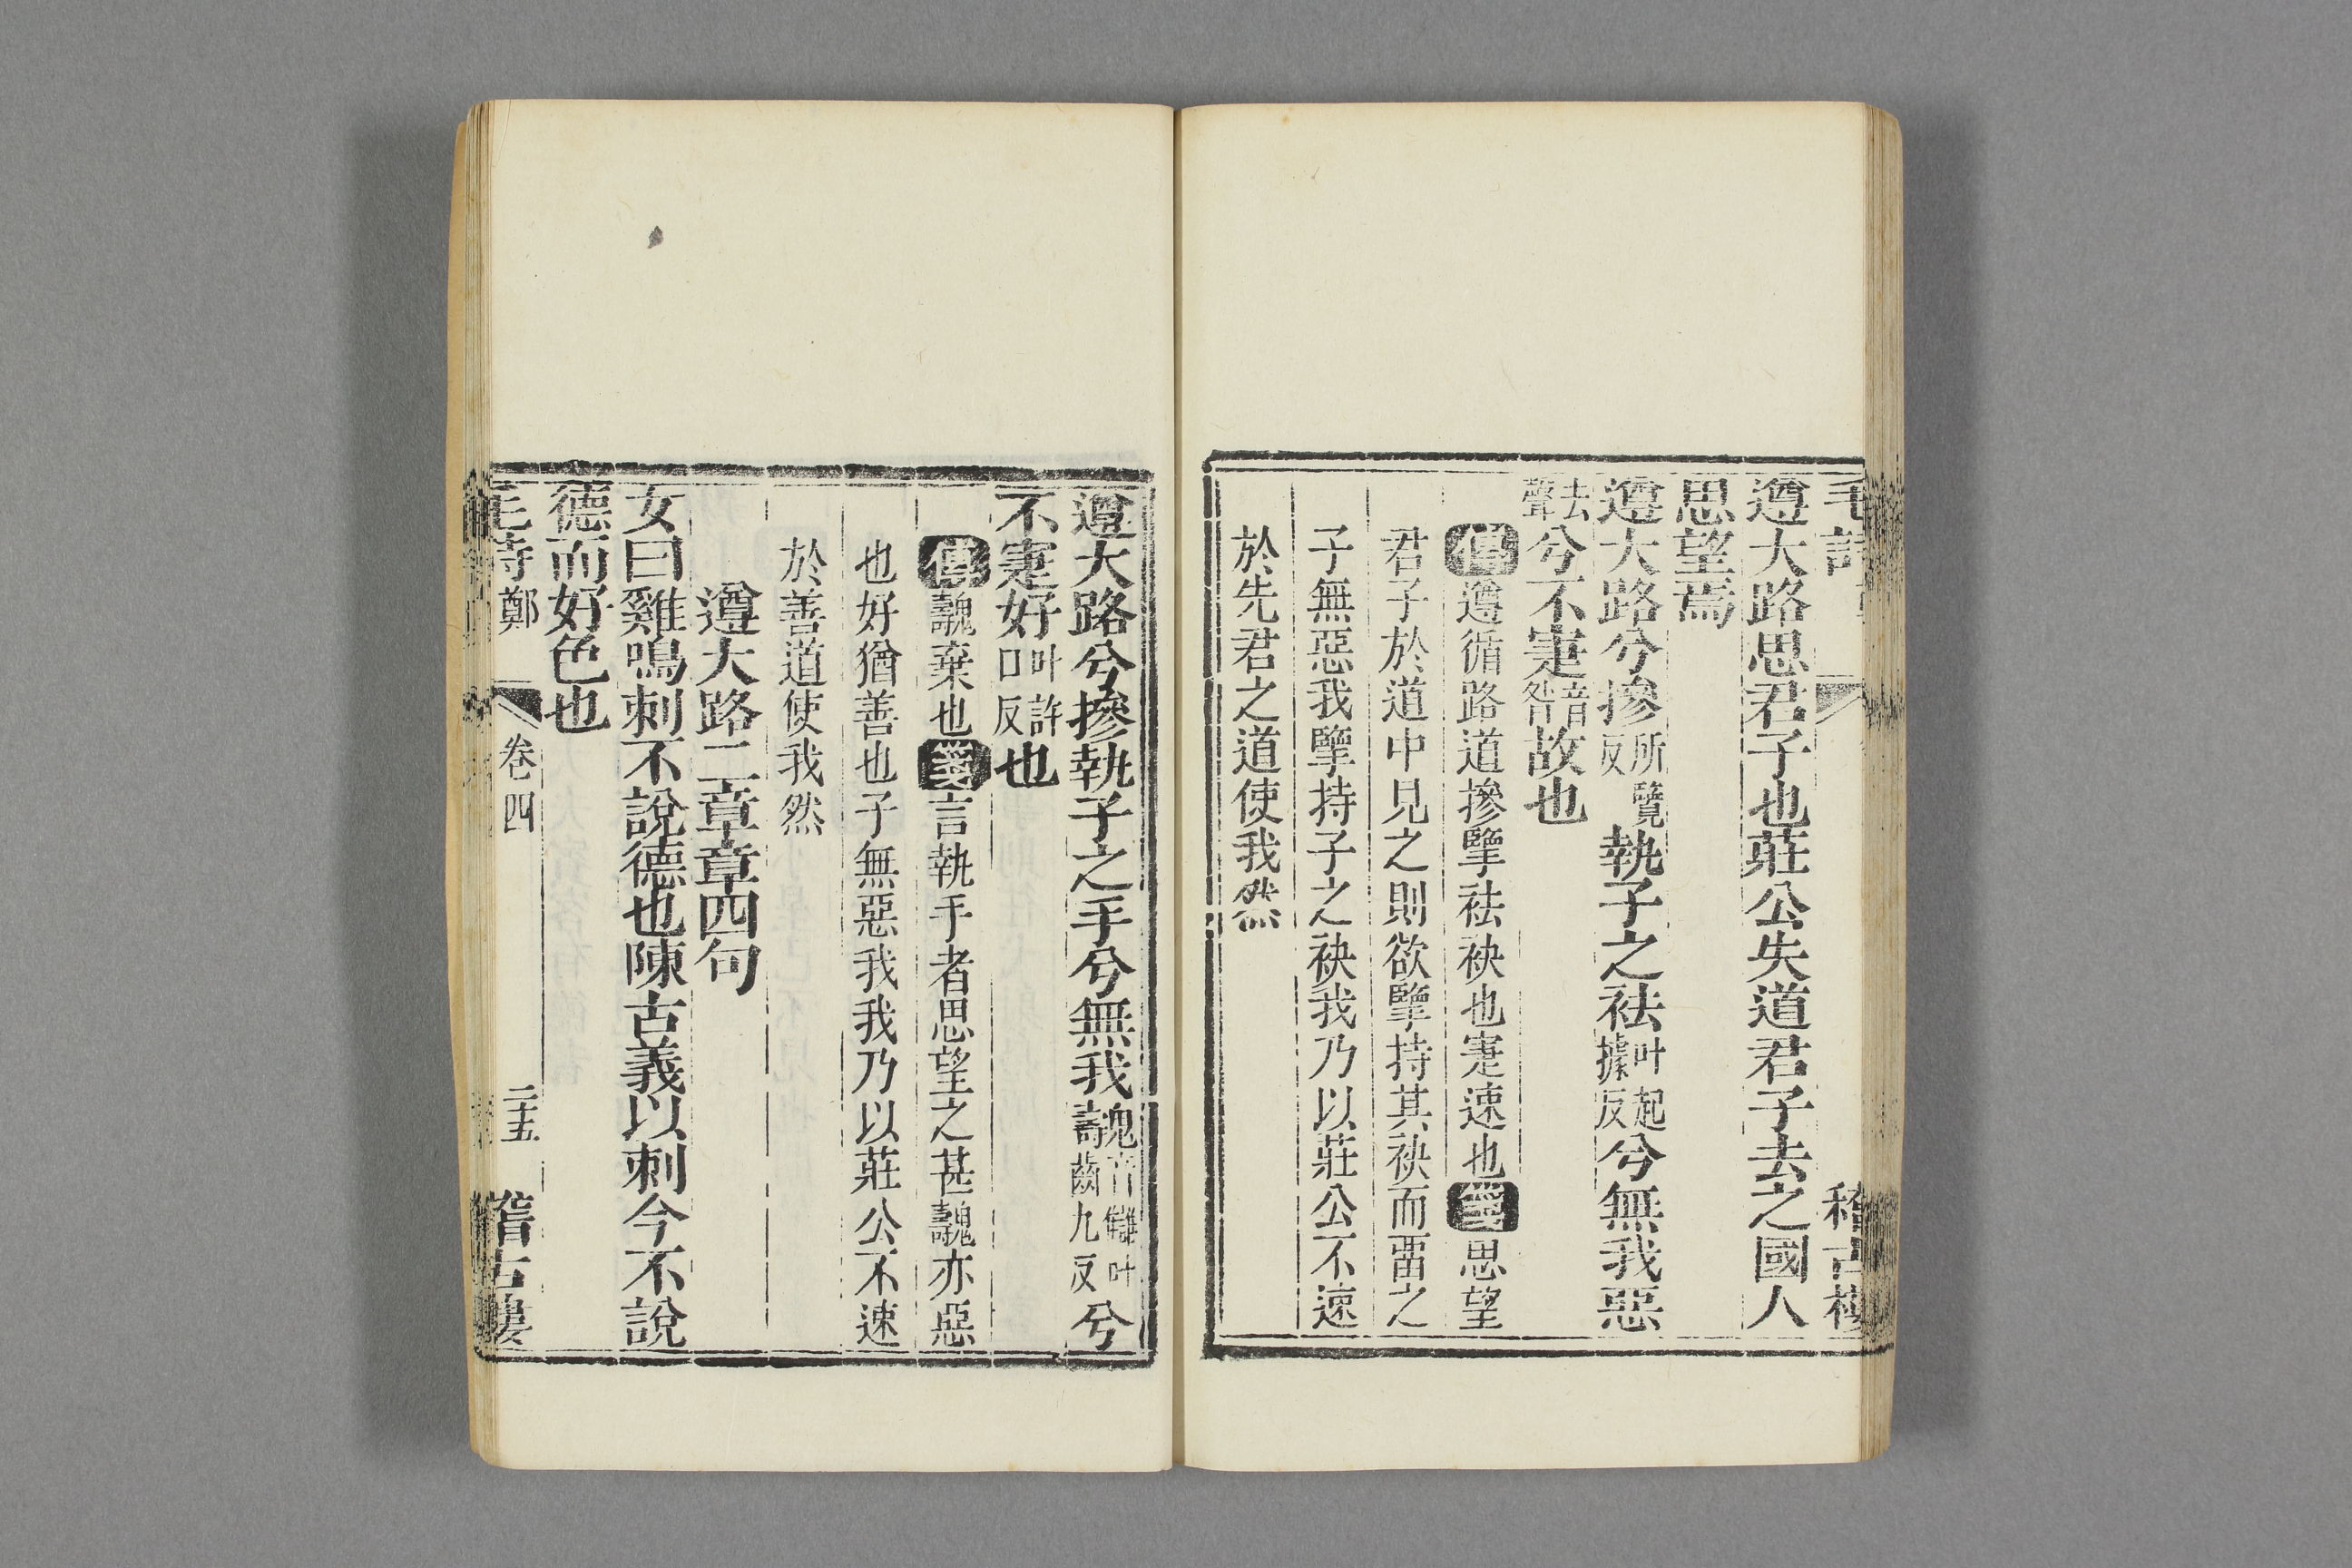 毛詩 稽古樓
遵大路思君子也莊公失道君子去之國人
思望焉
遵大路兮摻所覽反執子之袪叶起據反兮無我惡
去聲兮不寁音昝故也
傳遵循路道摻擥袪袂也寁速也箋思望
君子於道中見之則欲擥持其袂而畱之
子無惡我擥持子之袂我乃以莊公不速
於先君之道使我然
遵大路兮摻執子之手兮無我魗音讎叶齒九反兮
不寁好叶許口反也
傳魗棄也箋言執手者思望之甚魗亦惡
也好猶善也子無惡我我乃以莊公不速
於善道使我然
遵大路二章章四句
女曰雞鳴刺不說德也陳古義以刺今不說
德而好色也
毛詩鄭 卷四 二十五 稽古樓